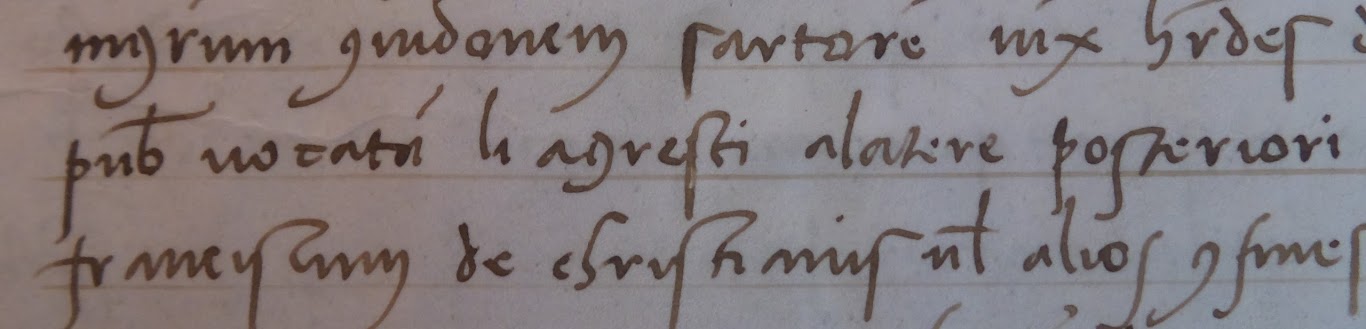 mgrum guidonem sartorē iux hrdes
pub vocatā li agresti alatere posteriori
franciscum de christianis vl alios 9fines